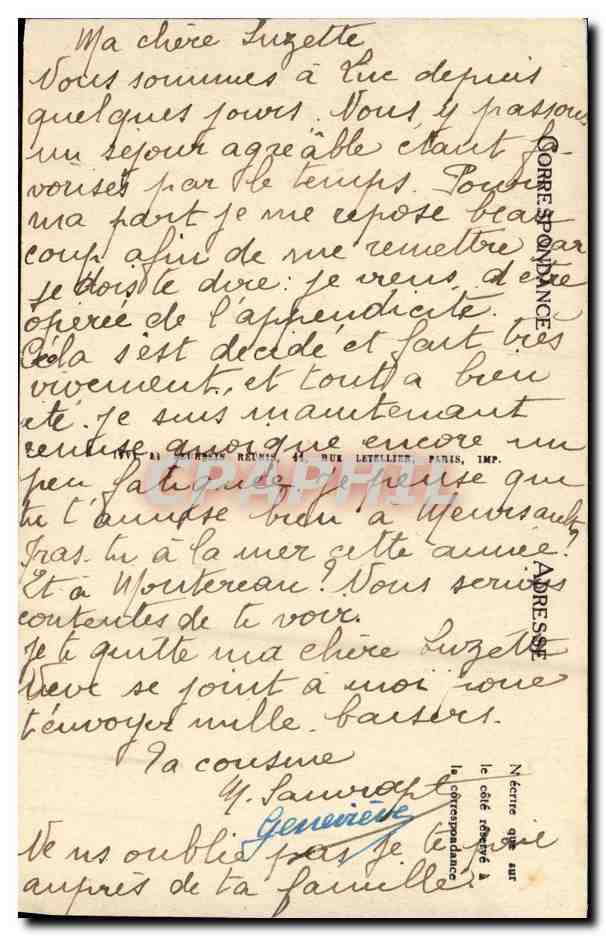 Ma chère Suzette
Nous sommes à Luc depuis
quelques jours. Nous y passons
un séjour agréable étant fa-
vorisés par le temps. Pour
ma part je me repose beau
coup afin de me remettre car
je dois te dire: je viens d'être
opérée de l'appendicite.
Cela s'est décidé et fait très
vivement, et tout a bien
été. Je suis maintenant
remise quoique encore un
peu fatiguée. je pense que
tu t'amuse bien à Meursault?
Iras-tu à la mer cette année?
Et à Montereau? Nous serions
contentes de te voir.
Je te quitte ma chère Suzette
Vève se joint à moi pour
t'envoyer mille baisers.
Ta cousine
Geneviève
Ne ns oublie pas je te prie
auprès de ta famille.
CORRESPONDANCE
ADRESSE
N'écrire que sur
le côté réservé à
la correspondance
RÉUNIS, 44, RUE LETELLIER, PARIS, IMP.
CPAPHIL